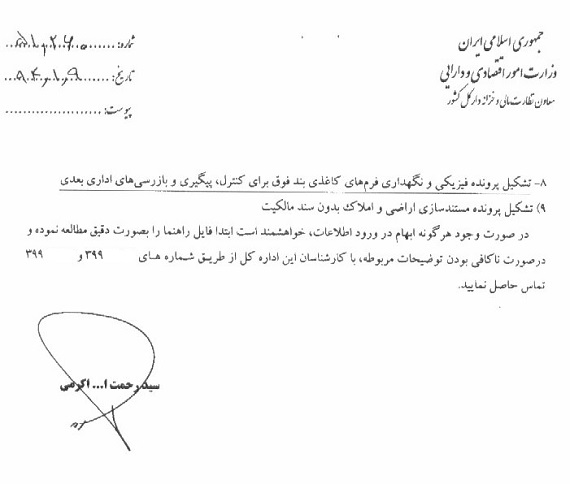 جمهوری اسلامی ایران
وزارت امور اقتصادی و دارایی
معاون نظارت مالی و خزانه دار کل کشور
شماره:
تاریخ:
پیوست:
۸- تشکیل پرونده فیزیکی و نگهداری فرم‌های کاغذی بند فوق برای کنترل، پیگیری و بازرسی‌های اداری بعدی
۹) تشکیل پرونده مستندسازی اراضی و املاک بدون سند مالکیت
در صورت وجود هرگونه ابهام در ورود اطلاعات، خواهشمند است ابتدا فایل راهنما را بصورت دقیق مطالعه نموده و
درصورت ناکافی بودن توضیحات مربوطه، با کارشناسان این اداره کل از طریق شماره های ۳۹۹ و ۳۹۹
تماس حاصل نمایید.
سید رحمت ا... اکرمی